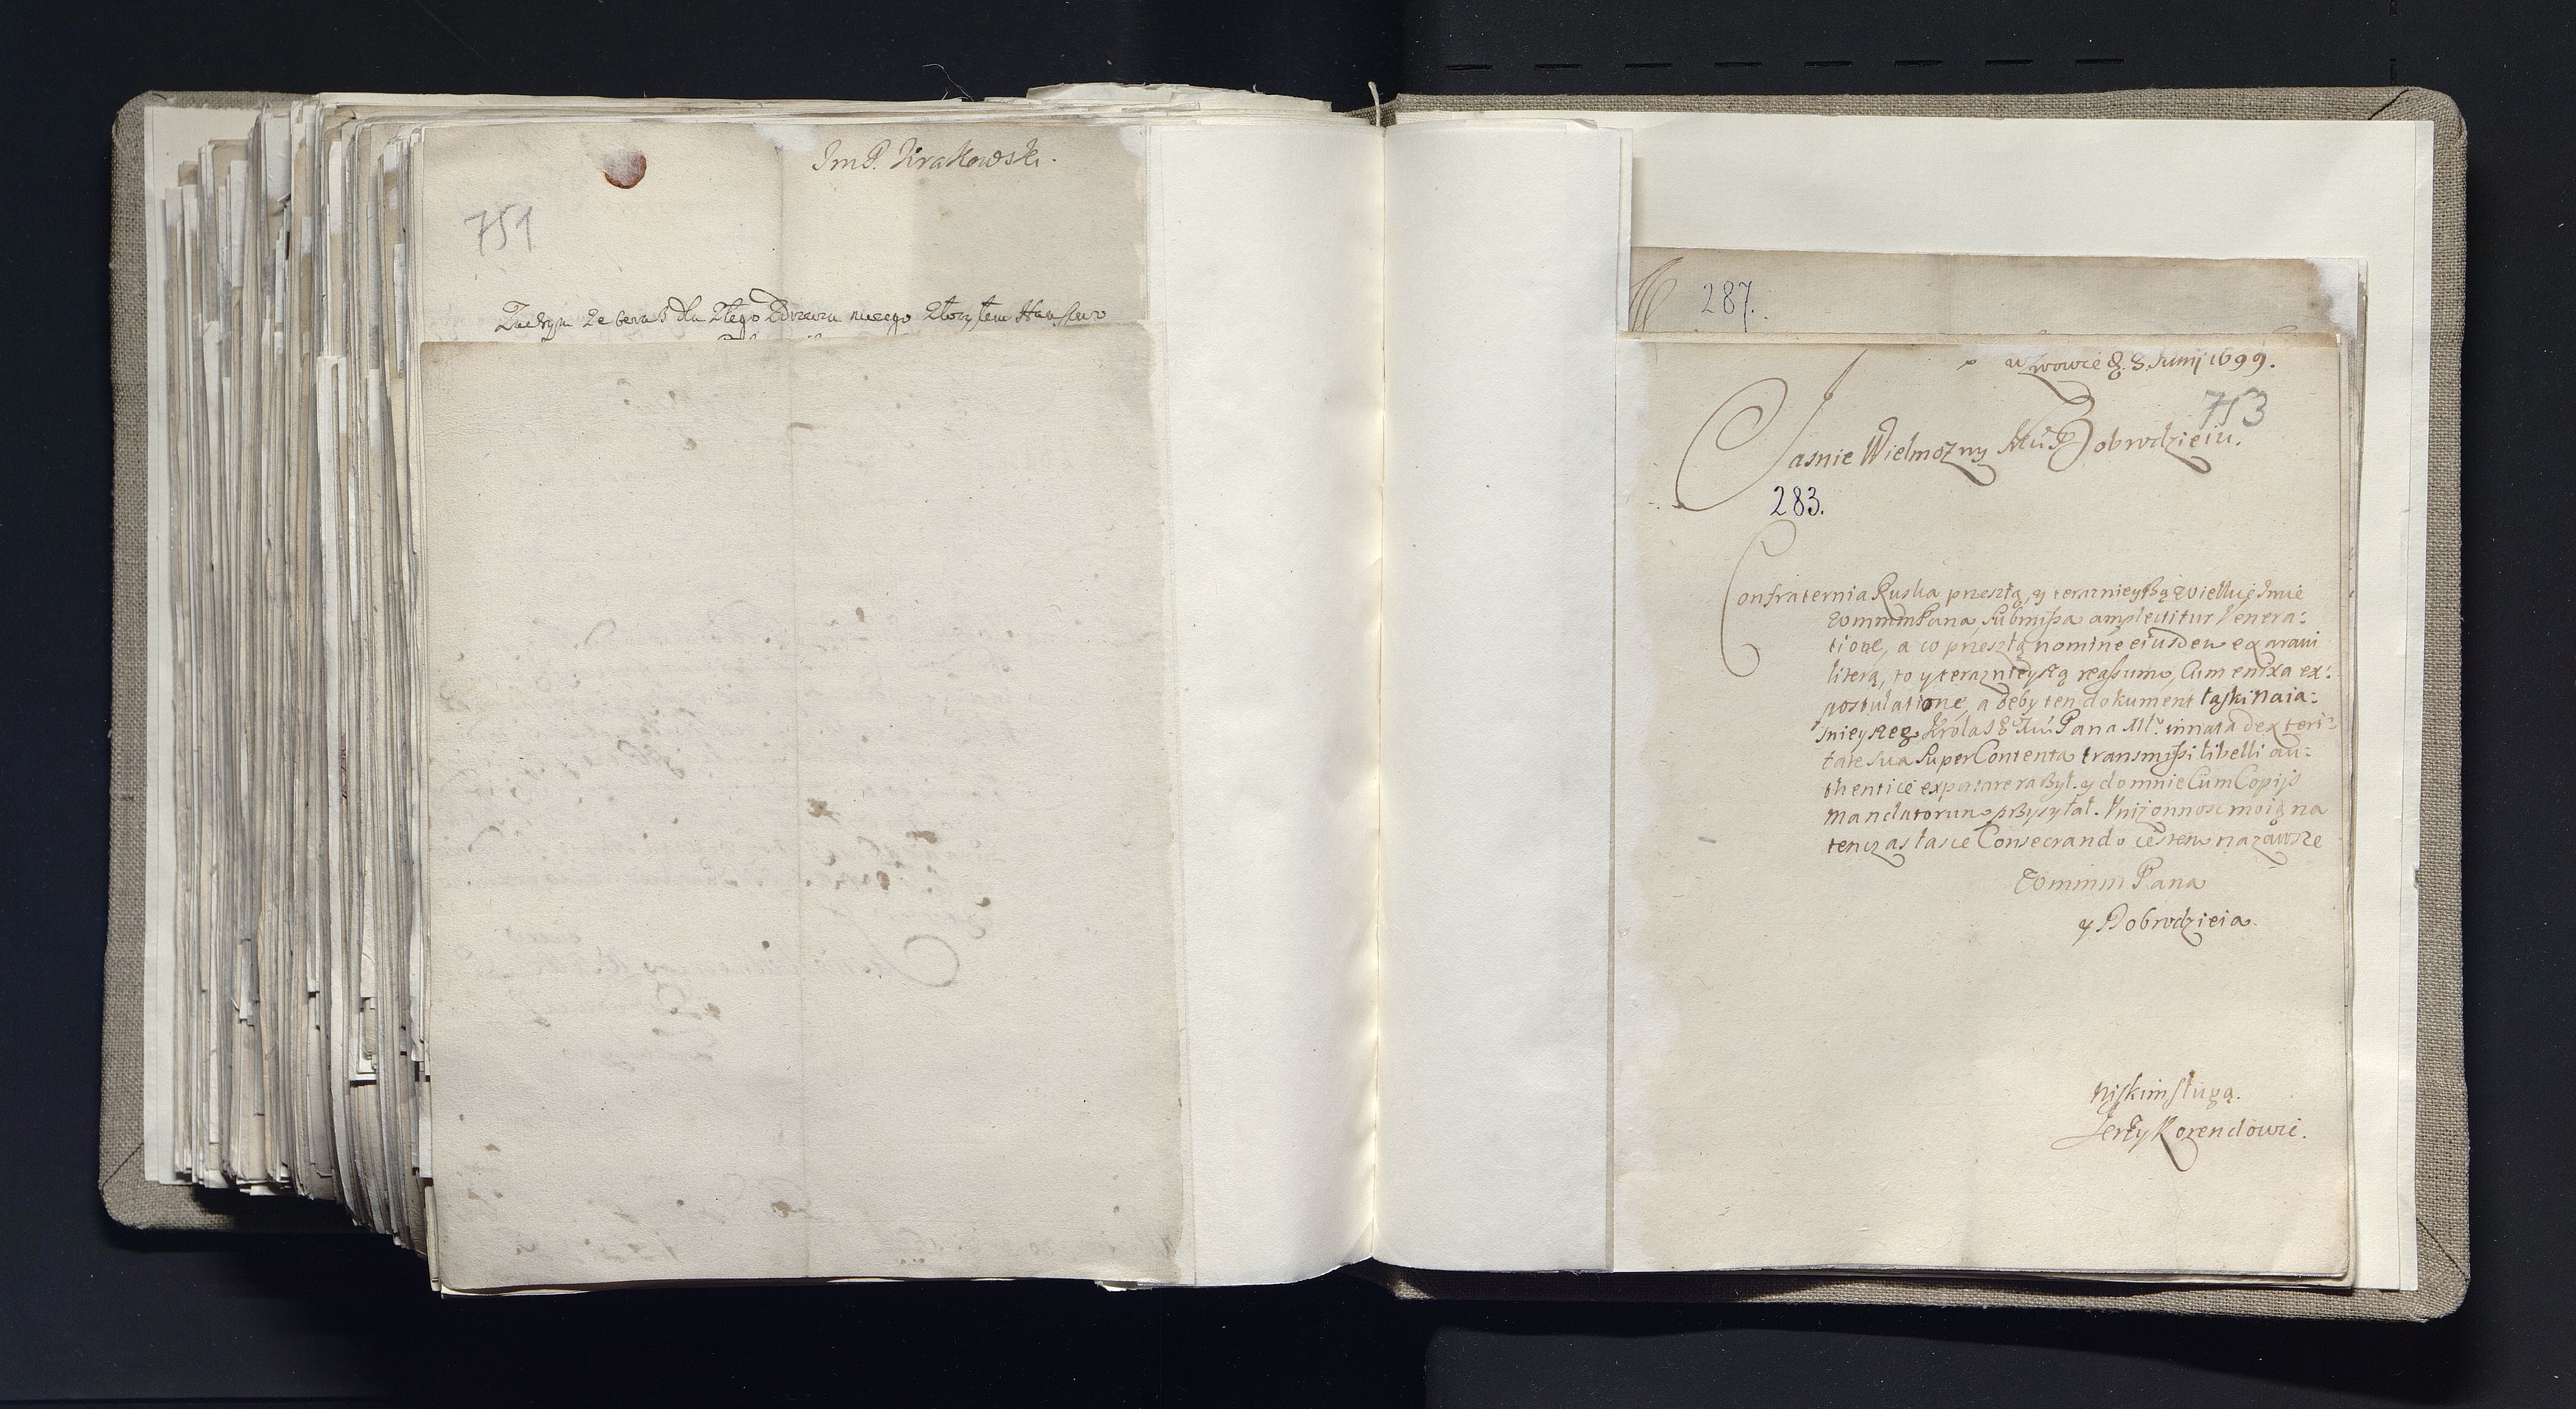 Im P. Krakowski.
751
Zachyn ze teraz dla złego Zdrowia mego złożyłem
287.
w Lwowie d. 8. Junij 1699.
753
Jasnie Wielmożny Mći P Dobrodzieiu.
283.
Confraternia Ruska przeszłą, y teraznieyszą
WMMM Pana, submissa amplectitur Venera:
tione, a co przeszłą nomine eiusdem exaravi
literą, to y teraznieyszą reassumo, Cum enixa ex:
postulatione, ażeby ten dokument łaski Naia:
snieyszeg Króla JE Mći Pana Mł. innata dexteri:
tate sua super Contenta transmissi libelli au:
thentice expatare raczył. y do mnie Cum Copijs
Mandatorum przysyłał. Vniżonnosc moią na
tenczas łasce Consecrando iestem na zawsze
WMMM Pana
y Dobrodzieia.
niskim sługą.
Jerzy Korendowic.